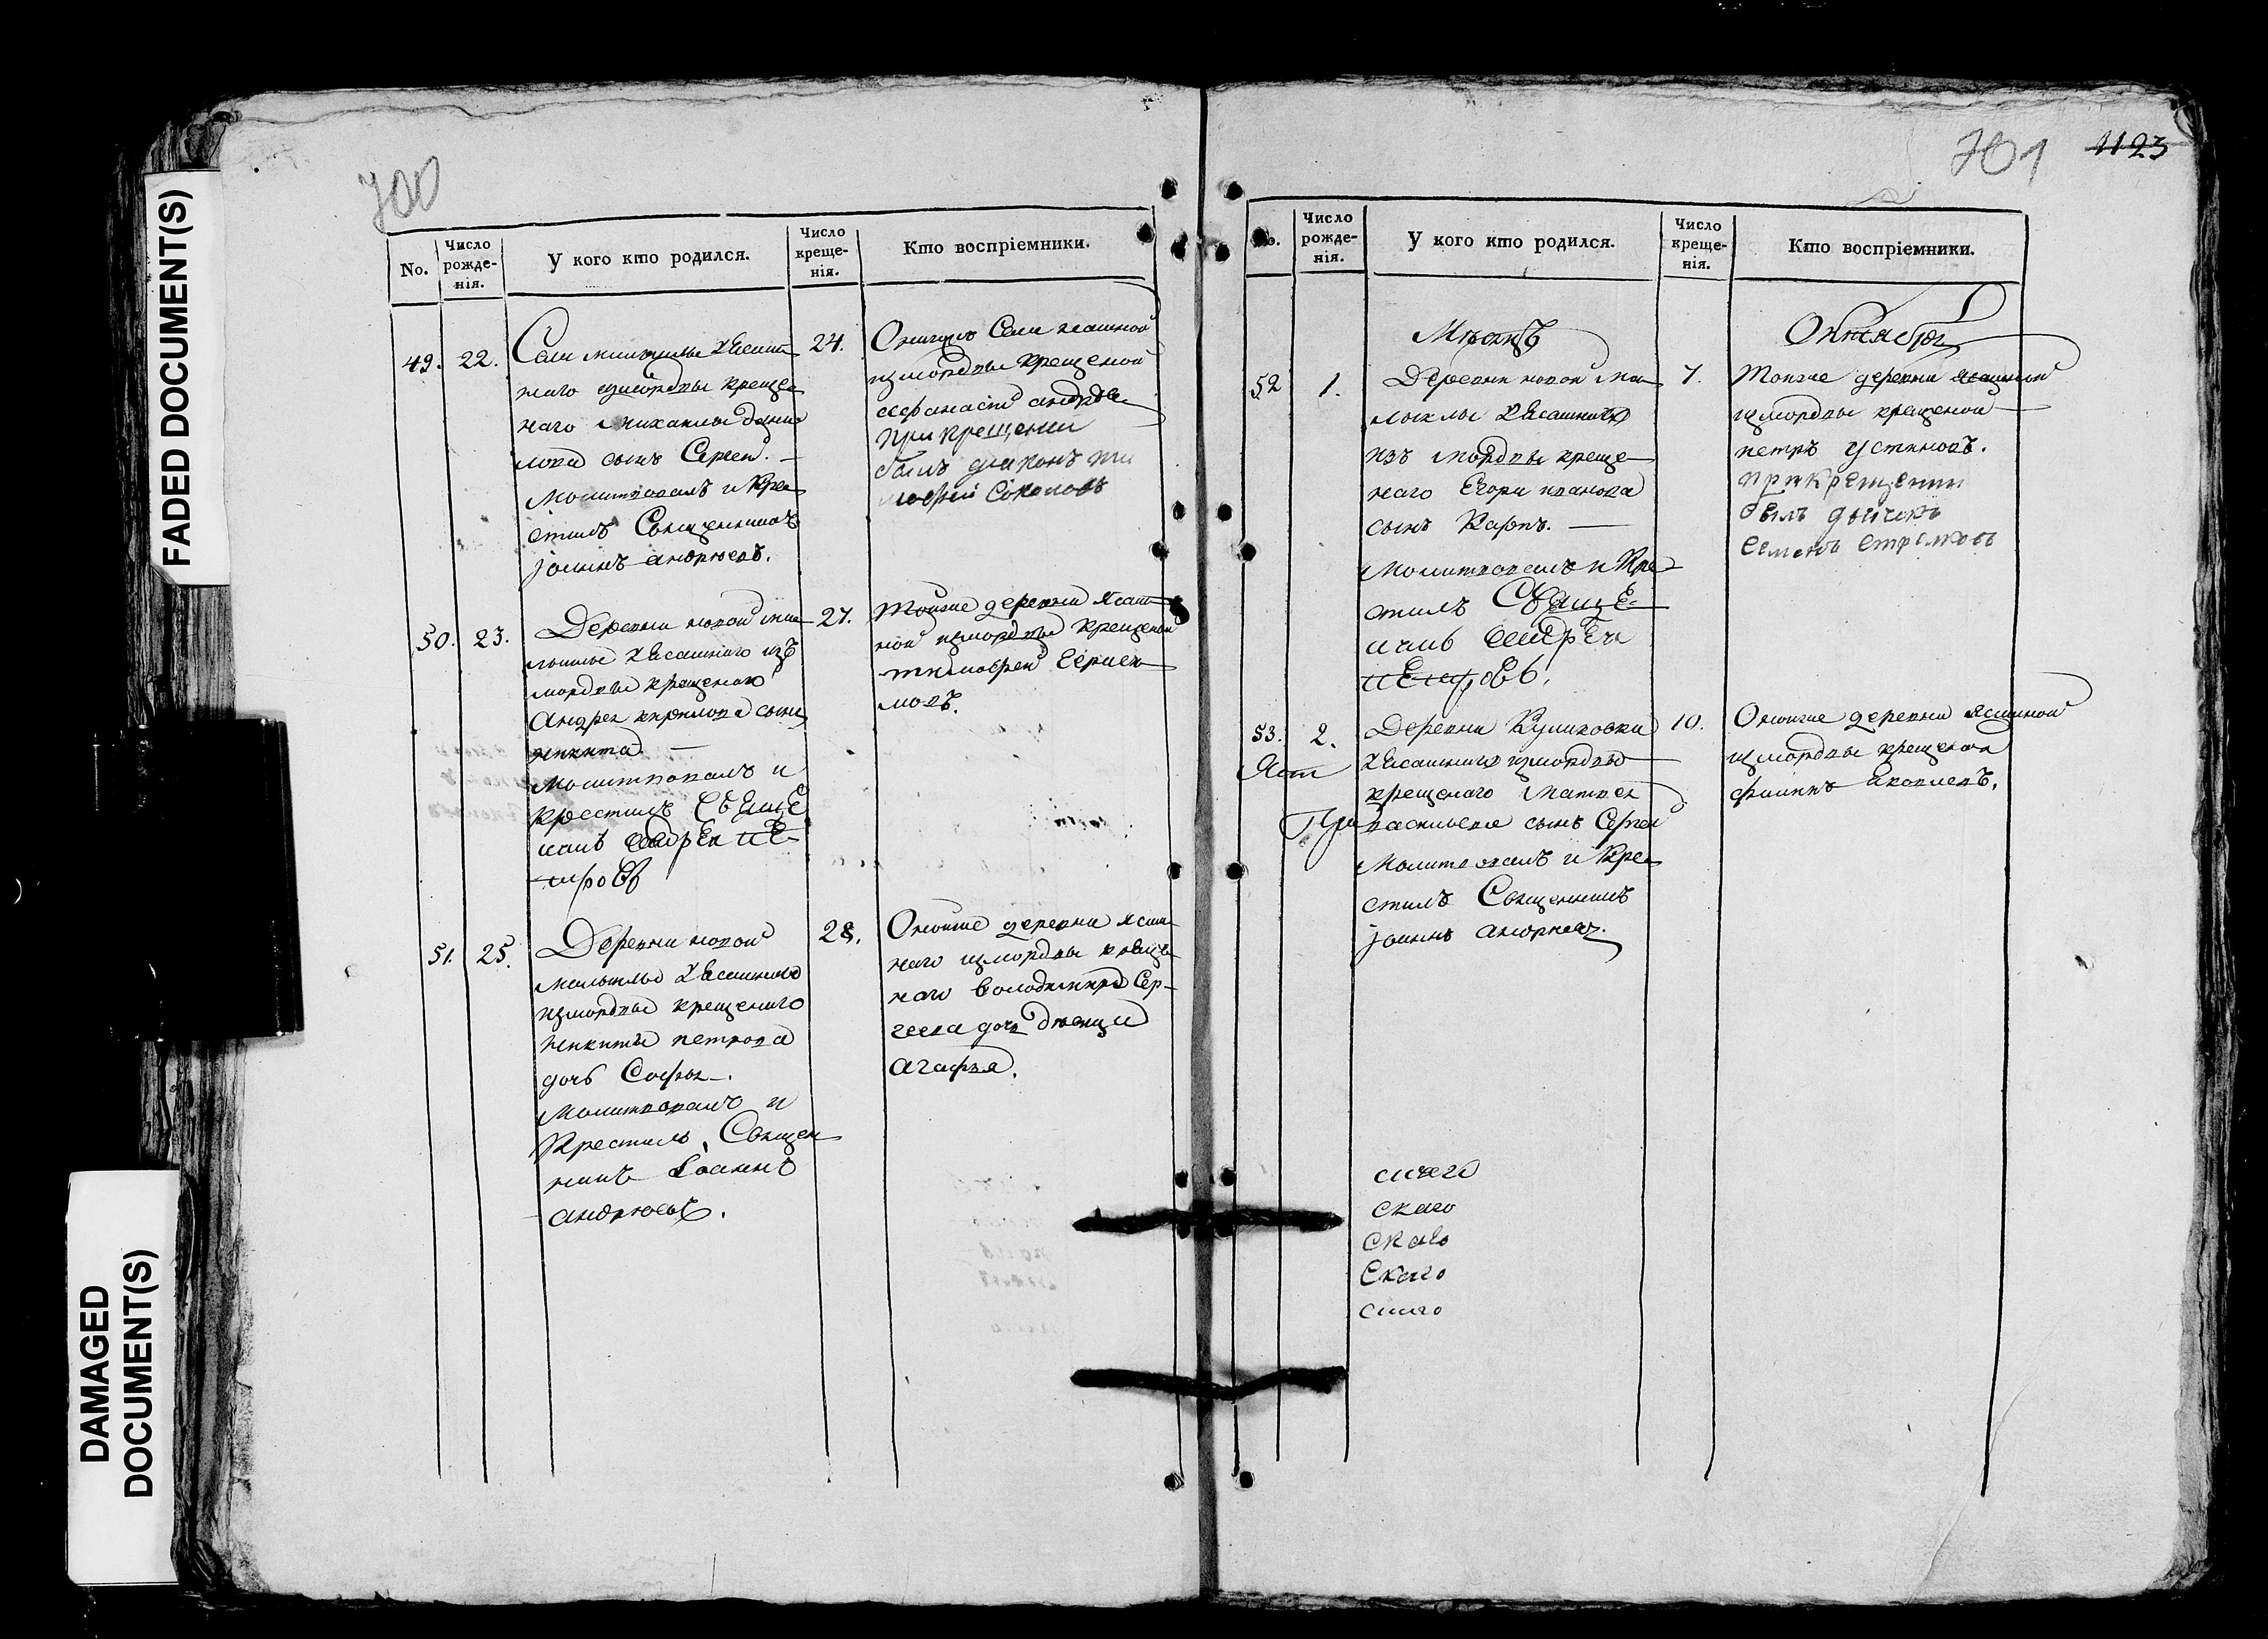 FADED DOCUMENT(S)
DAMAGED
DOCUMENT(S)
700
No.
Число
рожде-
нія.
У кого кто родился.
Число
креще-
нія.
Кто воспріемники.
49.
22.
Села
наго измордвы креще
наго михаила дани
лова сынъ Сергей.
Молитвовалъ и Кре
стилъ Священникъ
Іоаннъ андреевъ.
24.
Села ясашной
измордвы крещеной
афанасій андрѣе
При крещении
былъ диаконъ ти
мофей Соколовъ
50.
23.
Деревни новой ма
лыклы Ясашнаго изъ
мордвы крещенаго
Андрея кирилова сынъ
никита.
Молитвовалъ и
крестилъ Свяще
никъ андреи пе
тровъ
27.
Тоиже деревни Ясаш
ной измордвы крещеной
тимофей
51.
25.
Деревни новой
малыклы Ясашнаго
измордвы крещенаго
никиты петрова
дочь Софья.
Молитвовалъ и
Крестилъ Священ
никъ Іоаннъ
андреевъ.
28.
Оноиже деревни ясаш
наго измордвы креще
наго володимира Сер-
геева дочь девица
агафья.
701
1123
No.
Число
рожде-
нія.
У кого кто родился.
Число
креще-
нія.
Кто воспріемники.
Мѣсяцъ
Октябрь
52
1.
Деревни новой ма
лыклы Ясашнаго
изъ мордвы креще
наго Егора иванова
сынъ Карпъ.
Молитвовалъ и Кре
стилъ Свяще
никъ андреи
петровъ.
7.
Тоиже деревни ясашной
измордвы крещеной
петръ устиновъ.
при крещении
былъ дьячекъ
Семенъ
53.
2.
Деревни Куликовки
Ясашнаго измордвы
крещенаго Матвея
васильева сынъ Сергей
Молитвовалъ и Кре
стилъ Священникъ
Іоаннъ андреевъ.
10.
Оноиже деревни ясашной
измордвы крещеной
филипъ Яковлевъ.
скаго
скаго
Скаго